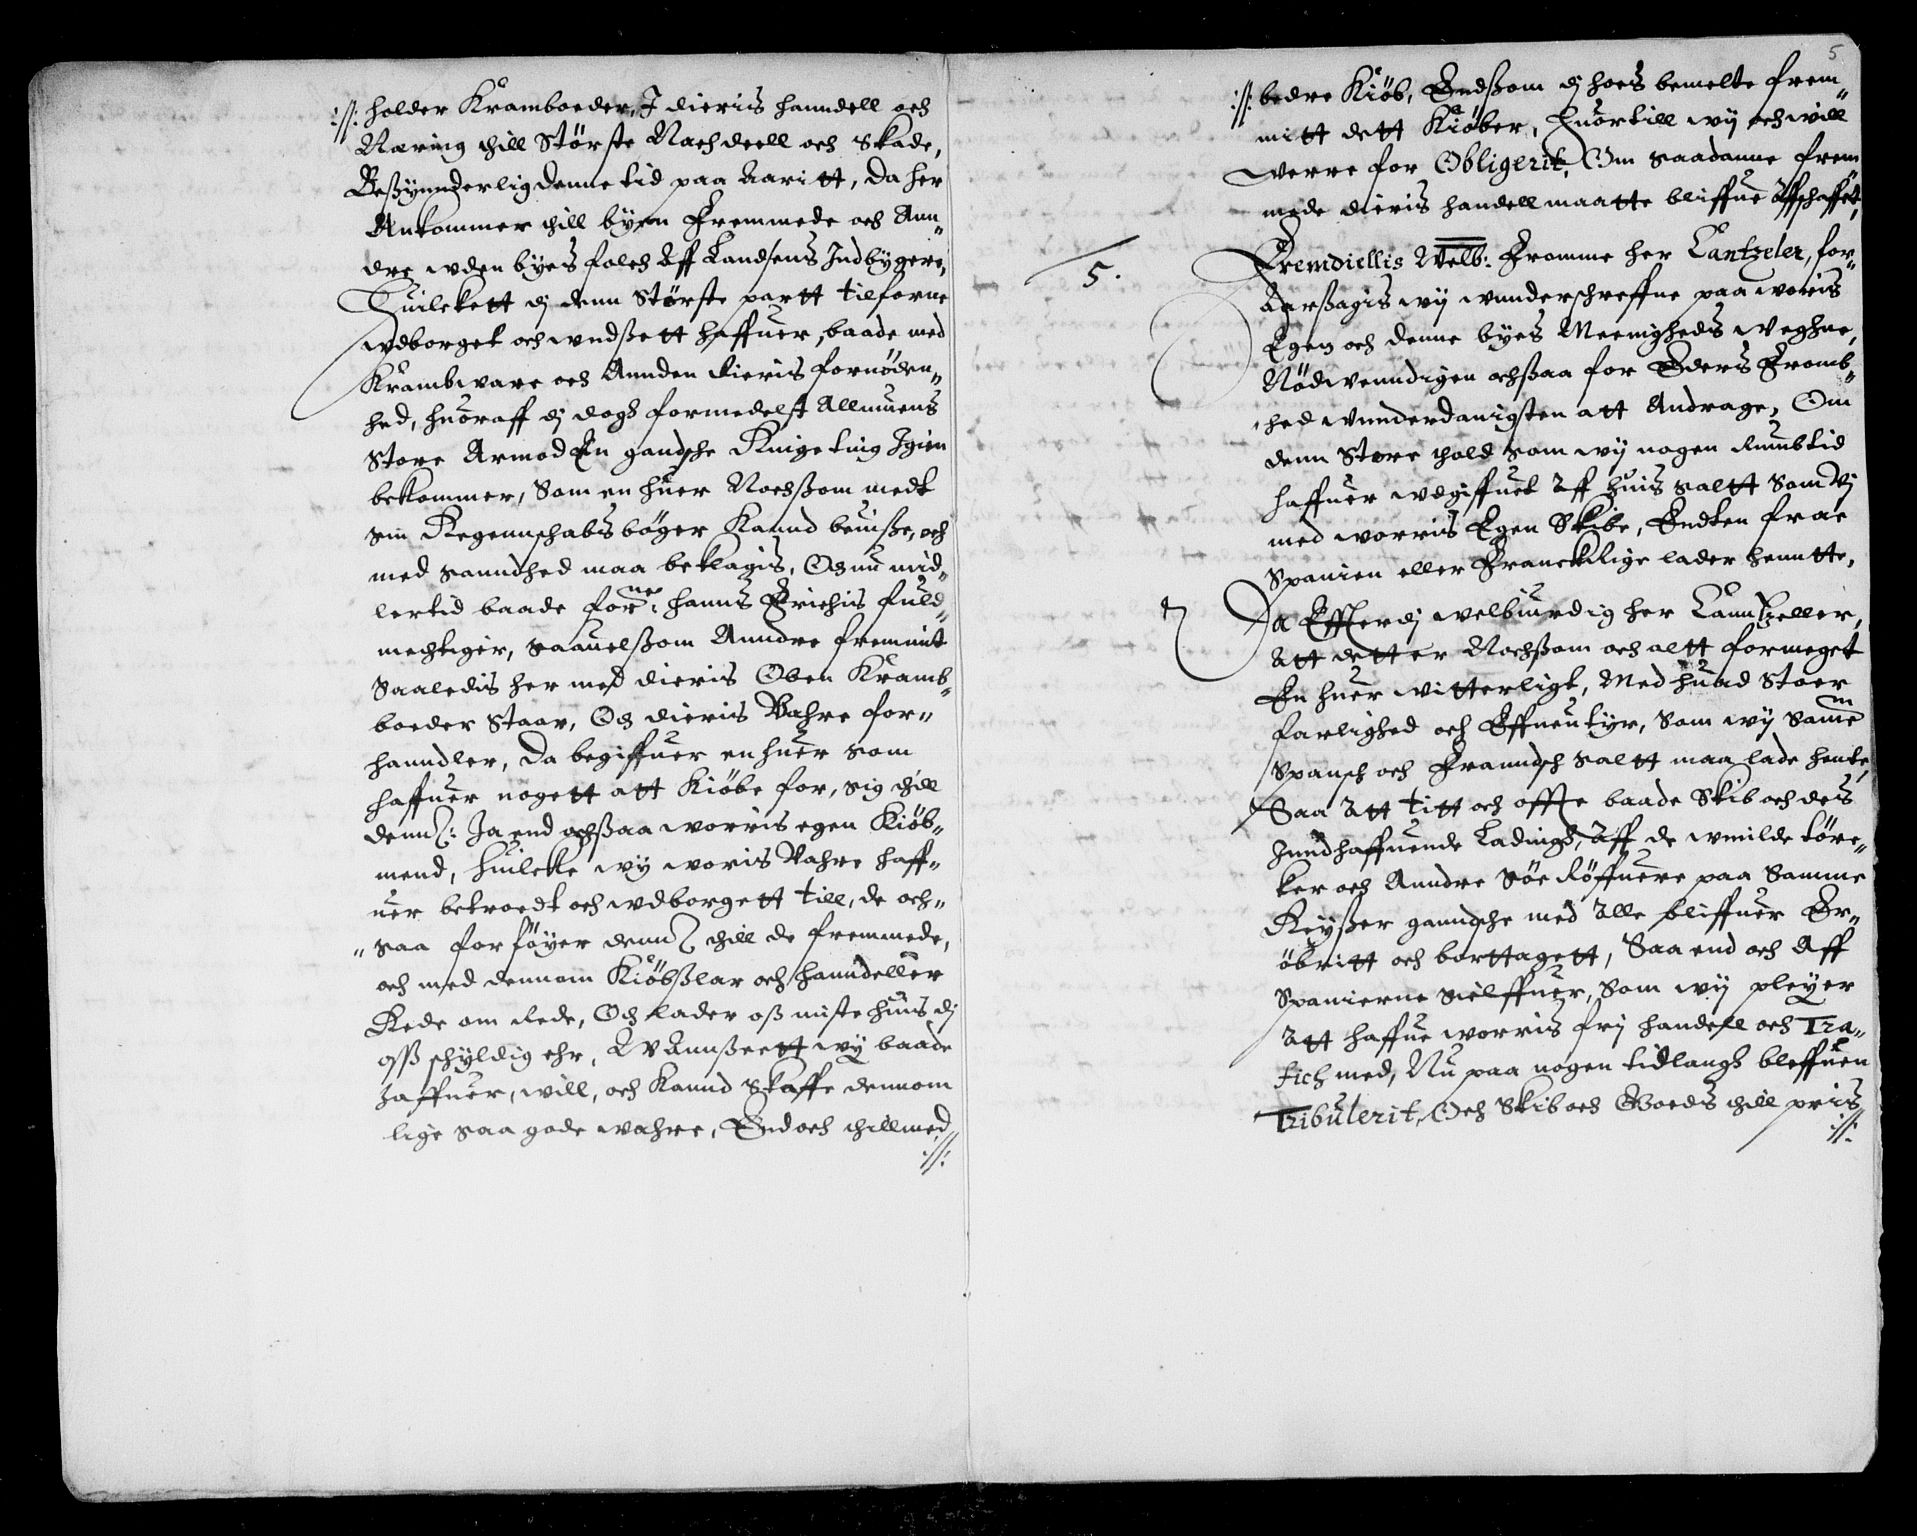 :/: holder Kramboeder, I dieris hanndell och
Næring thill Største Nachdeell och Skade,
Beßÿnnderlig denne tid paa Aaritt, da her
Ankommer thill byen Fremmede och Ann„
dre uden byes folch Aff Landsens Indbÿgere,
Huilckett dj denn Største partt tilforne
udborget och undßett haffuer, baade med
Krambvare och Annden dieris fornøden„
hed, huoraff dj dogh formedelst Allmuens
Store Armod En gandsche Ringe ting Igien
bekommer, Som en huer Nochßom medt
sin Regennschabs bøger Kannd beuiße, och
med sanndhed maa beklagis, Och nu mid„
lertid baade forne: Hanns Erichis fuld„
mechtiger, saauelßom Anndre fremmit
Saaledis her med dieris Oben Kramb„
boeder Staar, Och dieris Vahre for„
hanndler, da begiffuer en huer som
haffuer nogett att Kiøbe for, sig thill
denn: Ja end ochßaa worris egen Kiøb„
mend, huilcke wÿ woris Vahre haff„
uer betroedt och udborgett till, de och„
„saa forføyer denn thill de fremmede,
och med dennom Kiøbßlar och hanndeller
Rede om Rede, Och lader oß miste huis dj
oß schÿldig ehr, Uannßeett wÿ baade
haffuer, will, och Kannd Skaffe dennom
lige saa gode wahre, End och thillmed
:/:
5
:/: bedre Kiøb, Endßom dj hoes bemelte frem„
mitt dett Kiøber, Huortill wÿ och will
werre for Obligerit, Om saadanne frem
mede dieris handell maatte bliffue Affschaffet,
5.
Fremdiellis Welb: Fromme her Cantzeler, for„
Aarßagis wÿ unnderschreffne paa woris
Egen och denne byes Meenigheds weghne,
Nødwenndigen ochßaa for Eders Fromb„
hed unnderdanigsten att Andrage, Om
denn Store thold som wÿ nogen Rumb tid
haffuer udgiffuet Aff huis saltt Som Vj
med worris Egen Skibe, Endten frae
Spanien eller Franckrige lader hennte,
Da Effterdj welbiurdig her Canntzeller,
Att dett er Nochßom och altt formeget
En huer witterligt, Med huad Stoer
farlighed och Effuentÿr, Som wÿ Samme
Spansch och Franndsch saltt maa lade hente,
Saa Att titt och offte baade Skib och des
Inndhaffuende Ladingh, Aff de umilde tørc„
ker och Anndre Søe Røffuere paa Samme
Reÿßer ganndsche med Alle bliffuer Er„
øbritt och borttagett, Saa end och Aff
Spanierne sielffuer, Som wÿ pleÿer
Att haffue worris frj handell och Tra„
fich med, Nu paa nogen tidlangh bleffuen
Tribulerit, Och Skib och Goeds thill priis
:/: